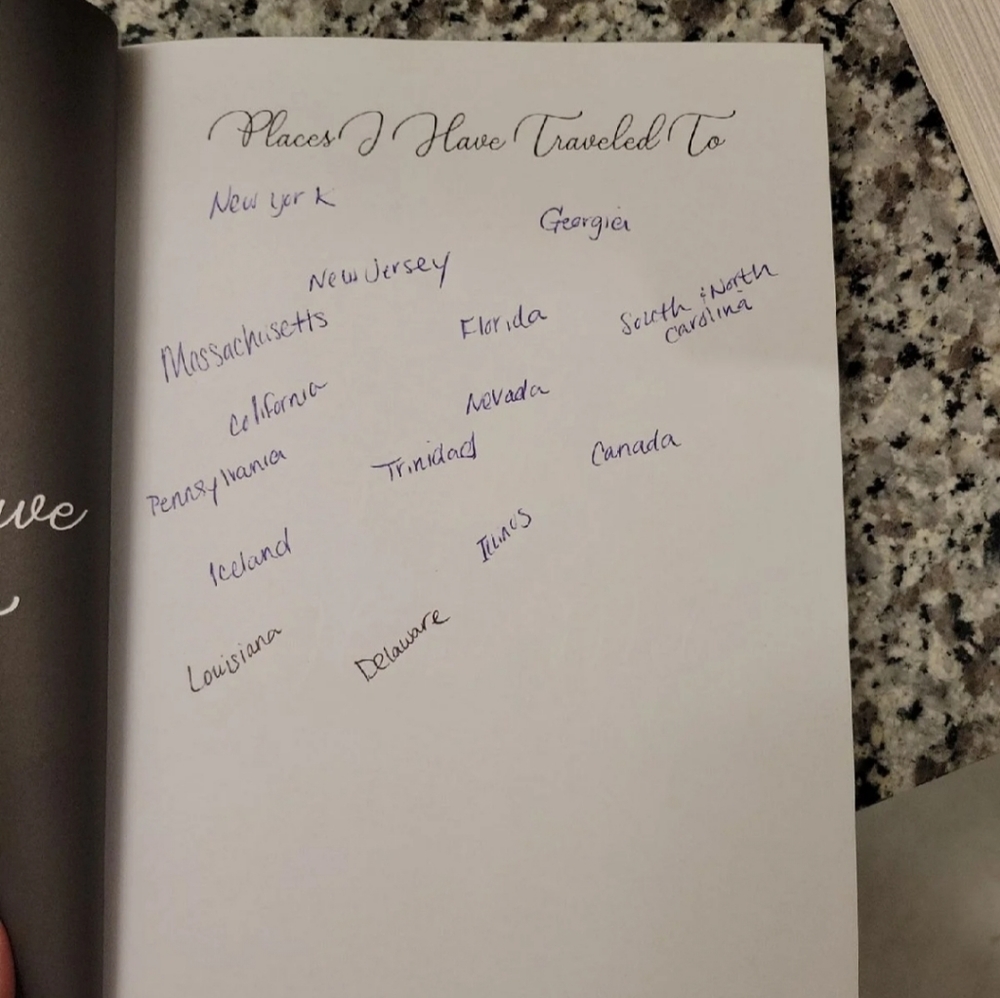 Places I Have Traveled To
New york
Georgia
New Jersey
South & North
Carolina
Massachusetts
Florida
California
Nevada
Pennsylvania
Trinidad
Canada
Iceland
Illinois
Louisiana
Delaware